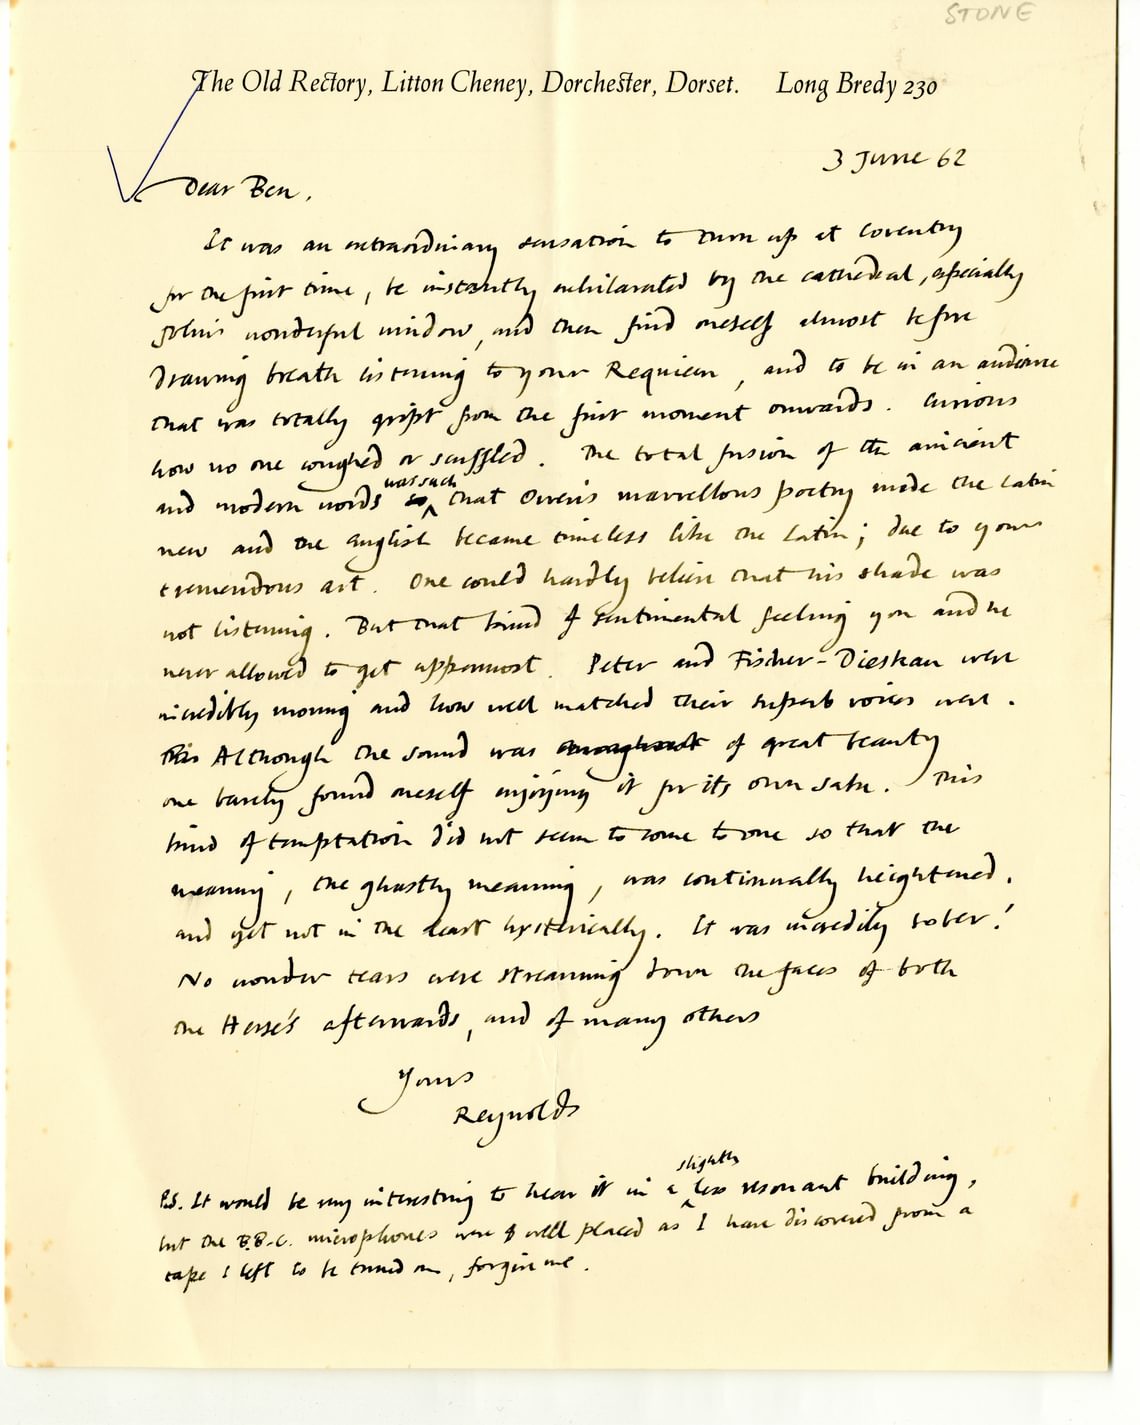 STONE
The Old Rectory, Litton Cheney, Dorchester, Dorset. Long Bredy 230
3 June 62
Dear Ben,
It was an extraordinary sensation to turn up at Coventry
for the first time, be instantly exhilarated by the cathedral, especially
John's wonderful window, and then find oneself almost before
drawing breath listening to your Requiem, and to be in an audience
that was totally gript from the first moment onwards. Curious
how no one coughed or scuffled. The total fusion of the ancient
was such
and modern words so that Owen's marvellous poetry made the Latin
new and the English became timeless like the Latin; due to your
tremendous art. One could hardly believe that his shade was
not listening. But that kind of sentimental feeling you and he
never allowed to get uppermost. Peter and Fischer-Dieskau were
incredibly moving and how well matched their superb voices were.
This Although the sound was throughout of great beauty
one barely found oneself enjoying it for its own sake. This
kind of temptation did not seem to come to one so that the
meaning, the ghastly meaning, was continually heightened.
and yet not in the least hysterically. It was incredibly sober!
No wonder tears were streaming down the faces of both
the Hesse's afterwards, and of many others
Yours
Reynolds
slightly
P.S. It would be very interesting to hear it in a less resonant building,
but the B.B.C. microphones were well placed as I have discovered from a
tape I left to be turned on, forgive me.